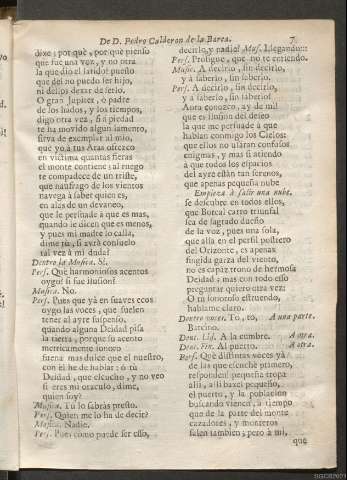 De D. Pedro Calderon de la Barca. 7
dixe; por què, por què pienso
que fue una voz, y no otra
la que diò el latido? puesto
que del no puedo ser hijo,
ni dellos dexar de serlo.
O gran Jupiter, ò padre
de los hados, y los tiempos,
digo otra vez, si à piedad
te ha movido algun lamento,
sirva de exemplar al mio,
que yo à tus Aras ofrezco
en victima quantas fieras
el monte contiene; al ruego
te compadece de un triste,
que naufrago de los vientos
navega à saber quien es,
en alas de un devaneo,
que le persuade à que es mas,
quando le dicen que es menos,
y pues mi madre lo calla,
dime tù, si avrà consuelo
tal vez à mi duda?
Dentro la Musica. Sì.
Pers. Què harmoniosos acentos
oygo! si fue ilusion?
Musica. No.
Pers. Pues que yà en suaves ecos
oygo las voces, que suelen
tener al ayre suspenso,
quando alguna Deidad pisa
la tierra, porque su acento
metricamente sonoro
suena mas dulce que el nuestro,
con èl he de hablar: ò tù
Deidad, que escucho, y no veo
si eres mi oraculo, dime,
quien soy?
Musica. Tù lo sabràs presto.
Pers. Quien me lo ha de decir?
Musica. Nadie.
Pers. Pues como puede ser esso,
decirlo, y nadie? Mus. Llegando:::
Pers. Prosigue, que no te entiendo.
Music. A decirlo, sin decirlo,
y à saberlo, sin saberlo.
Pers. A decirlo, sin decirlo,
y à saberlo, sin saberlo!
Aora conozco, ay de mi!
que es ilusion del deseo
la que me persuade à que
hablan conmigo los Cielos:
que ellos no usàran confusos
enigmas, y mas si atiendo
à que todos los espacios
del ayre estàn tan serenos,
que apenas pequeña nube
Empieza à salir una nube.
se descubre en todos ellos,
que Boreal carro triunfal
sea de sagrado dueño
de la voz, pues una sola,
que allà en el perfil postrero
del Orizonte, es apenas
fingida garza del viento,
no es capàz trono de hermosa
Deidad; mas con todo esso
preguntar quiero otra vez:
O tù sonoroso estruendo,
hablame claro.
Dentro voces. To, to, A una parte.
Barcino.
Dent. Lis. A la cumbre. A otra.
Dent. Fin. Al puerto. A otra.
Pers. Què distintas voces yà
de las que escuchè primero,
responden! pequeña tropa
allà, allì baxèl pequeño,
el puerto, y la poblacion
buscando vienen, à tiempo
que de la parte del monte
cazadores, y monteros
salen tambien; pero à mi,
que